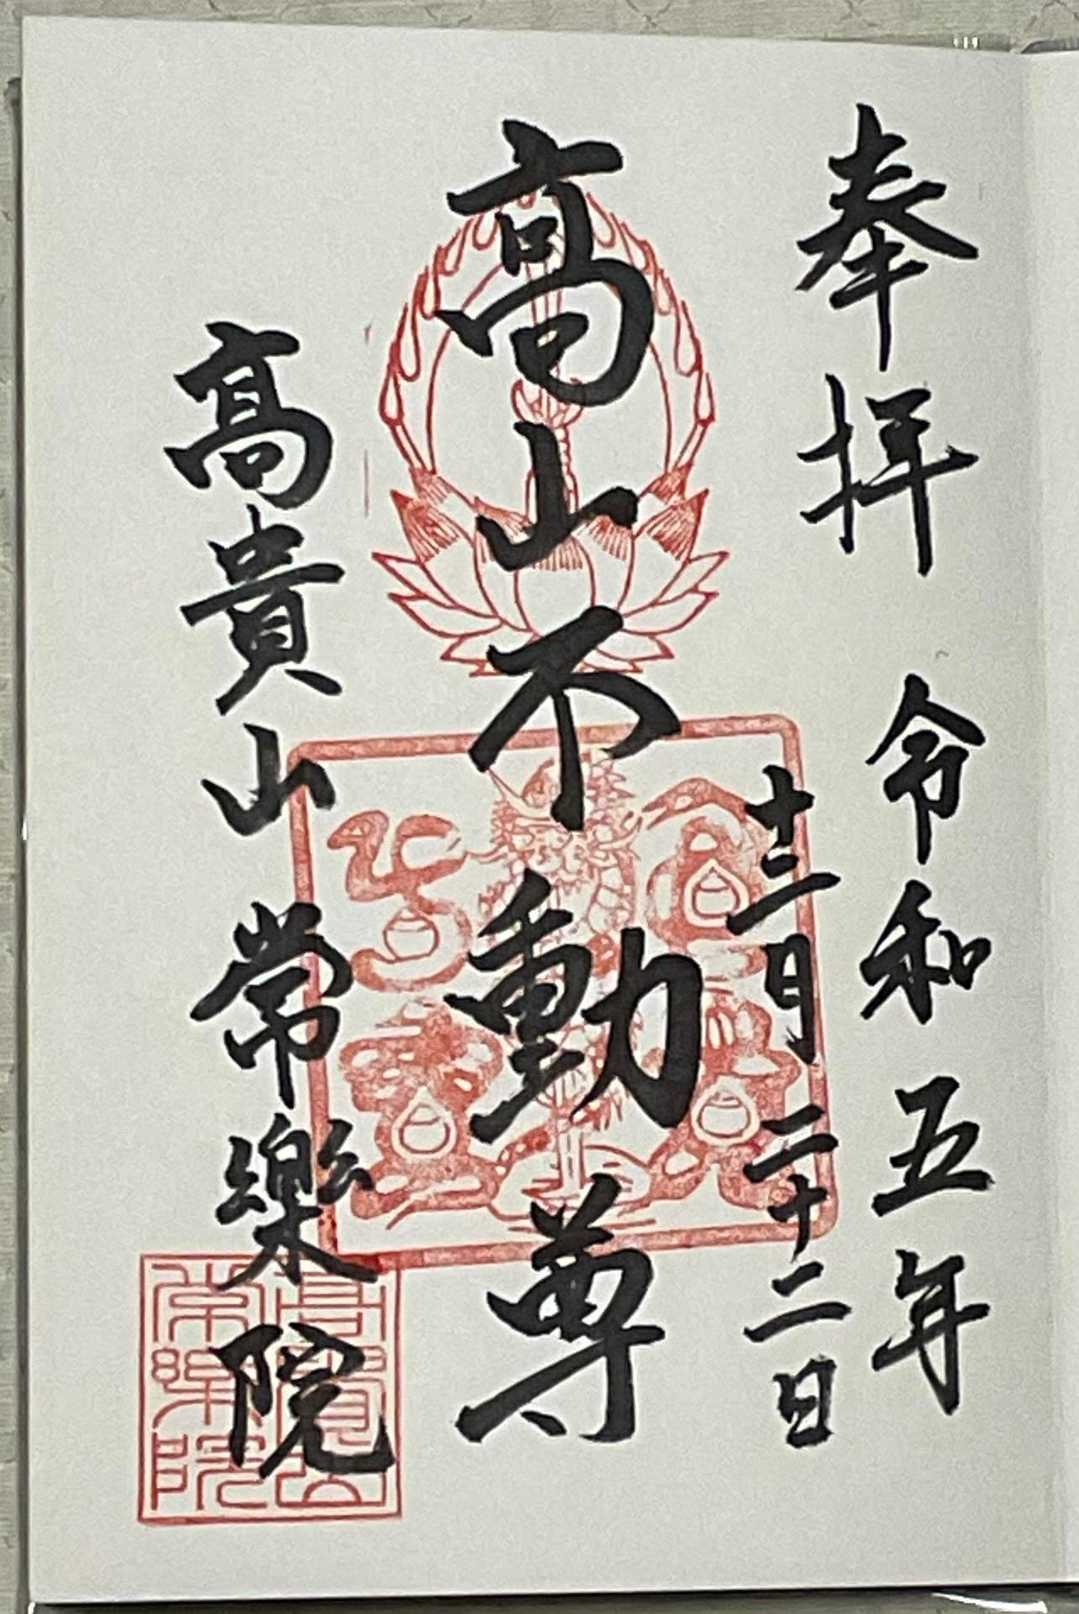 奉拝 令和五年
十二月二十二日
高山不動尊
高貴山常樂院
高貴山
常樂院